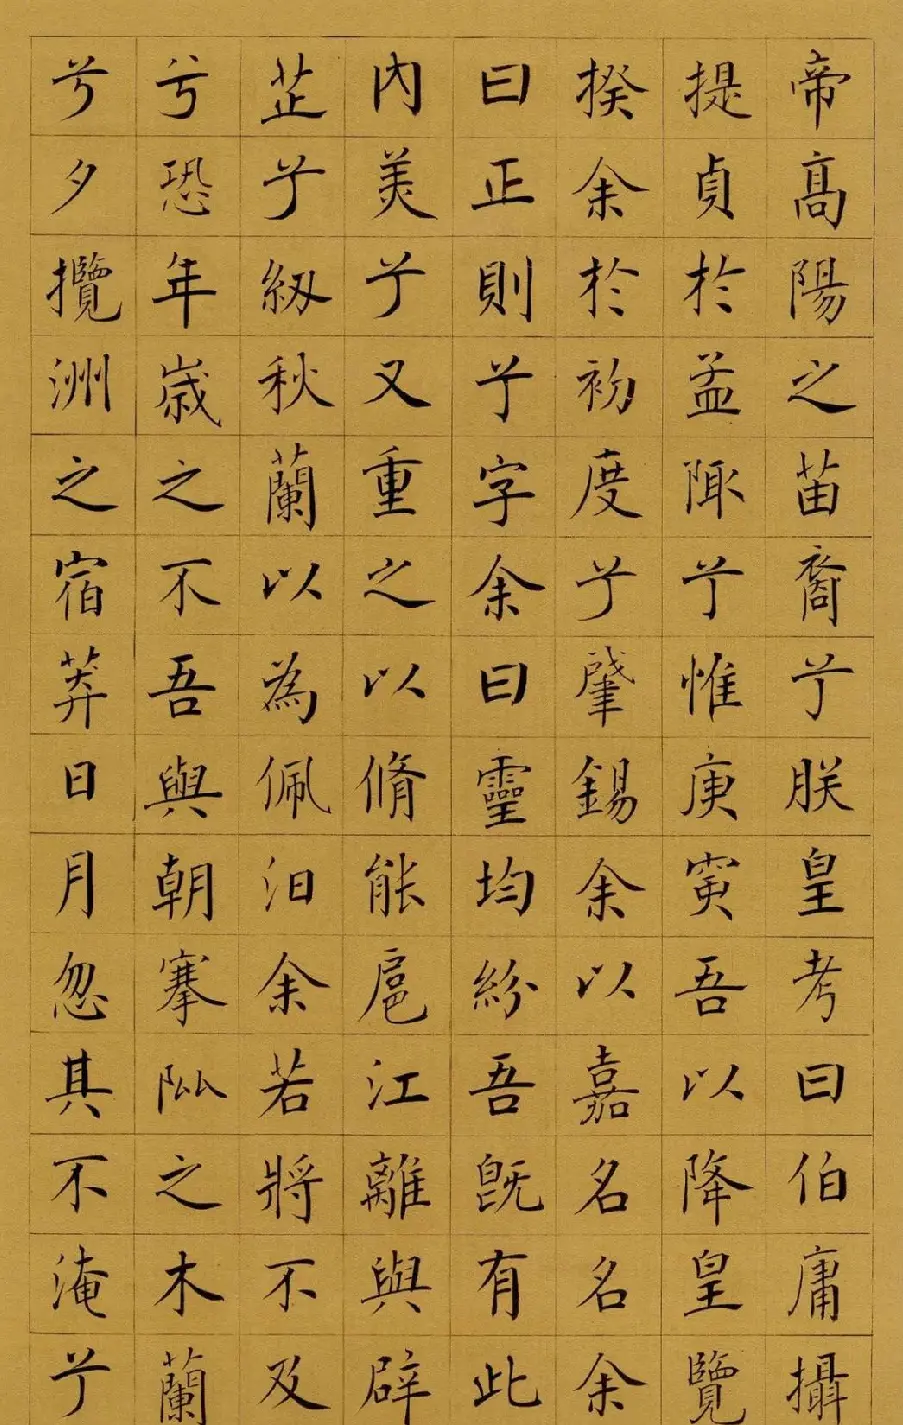 帝高陽之苗裔兮朕皇考曰伯庸攝
提貞於孟陬兮惟庚寅吾以降皇覽
揆余於初度兮肇錫余以嘉名名余
曰正則兮字余曰靈均紛吾既有此
內美兮又重之以脩能扈江離與辟
芷兮紉秋蘭以為佩汩余若將不及
兮恐年歲之不吾與朝搴阰之木蘭
兮夕攬洲之宿莽日月忽其不淹兮